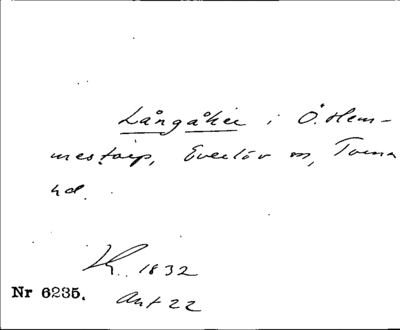 Långåker i Ö. Hem-
mestorp, Everlöv sn, Torna
hd.
1832
Nr 6235. Ant 22